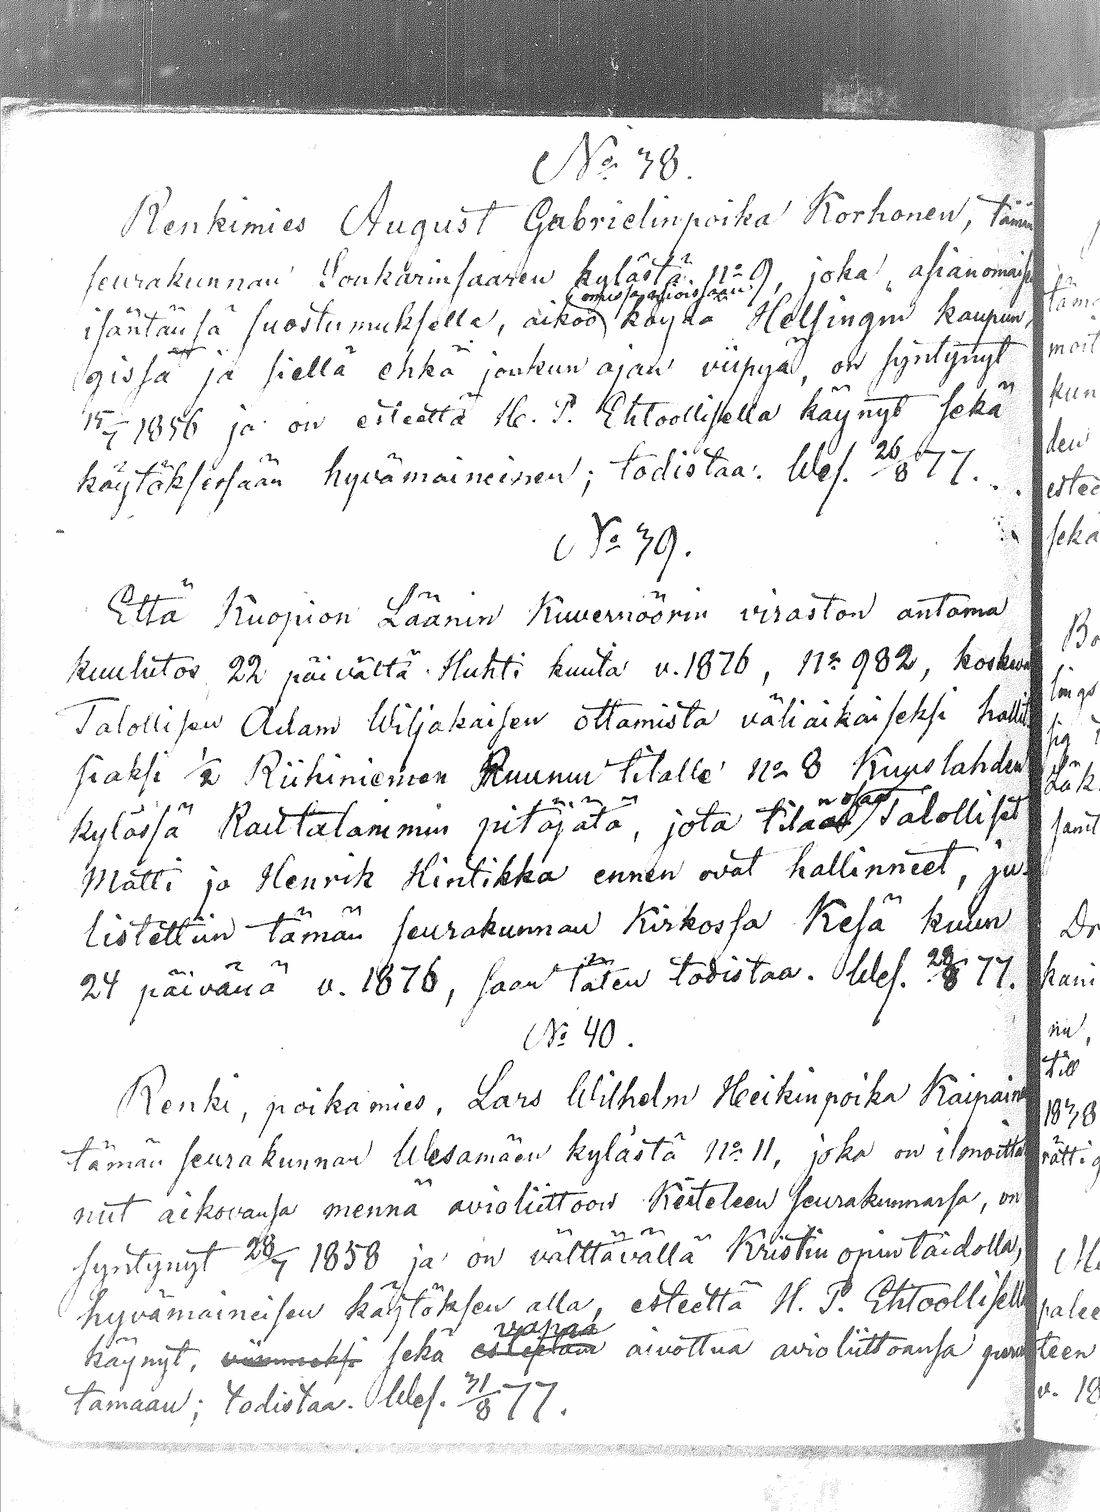 No 38.
Renkimies August Gabrielinpoika Korhonen, tämän
seurakunnan Sonkarinsaaren kylästä no 9, joka, asianomaisen
omissa asioissaan
isäntänsä suostumuksella, aikoo käydä Helsingin kaupun-
gissa ja siellä ehkä jonkun ajan viipyä, on syntynyt
15/7 1856 ja on esteettä H. P. Ehtoollisella käynyt sekä
käytöksessään hyvämaineinen; todistaa. Wes. 26/8 77.
No 39.
Että Kuopion Läänin Kuvernöörin viraston antama
kuulutos 22 päivältä Huhti kuuta v. 1876, no 982, koskeva
Talollisen Adam Wiljakaisen ottamista väliaikaiseksi hallit
siaksi 1/2 Riihiniemen Ruunun tilalle no 8 Kuuslahden
kylässä Rautalammin pitäjätä, jota tilan osaa Talolliset
Matti ja Henrik Hintikka ennen ovat hallinneet, ju-
listettiin tämän seurakunnan Kirkossa Kesä kuun
24 päivänä v. 1876, saan täten todistaa. Wes. 28/8 77.
No 40.
Renki, poikamies, Lars Wilhelm Heikinpoika Kaipainen
tämän seurakunnan Wesamäen kylästä no 11, joka on ilmoitta
nut aikovansa mennä avioliittoon Keiteleen seurakunnassa, on
syntynyt 28/7 1858 ja on välttävällä Kristin opin taidolla,
hyvämaineisen käytöksen alla, esteettä H. P. Ehtoollisella
vapaa
käynyt, sekä aivottua avioliittoansa perus
tamaan; todistaa. Wes. 31/8 77.